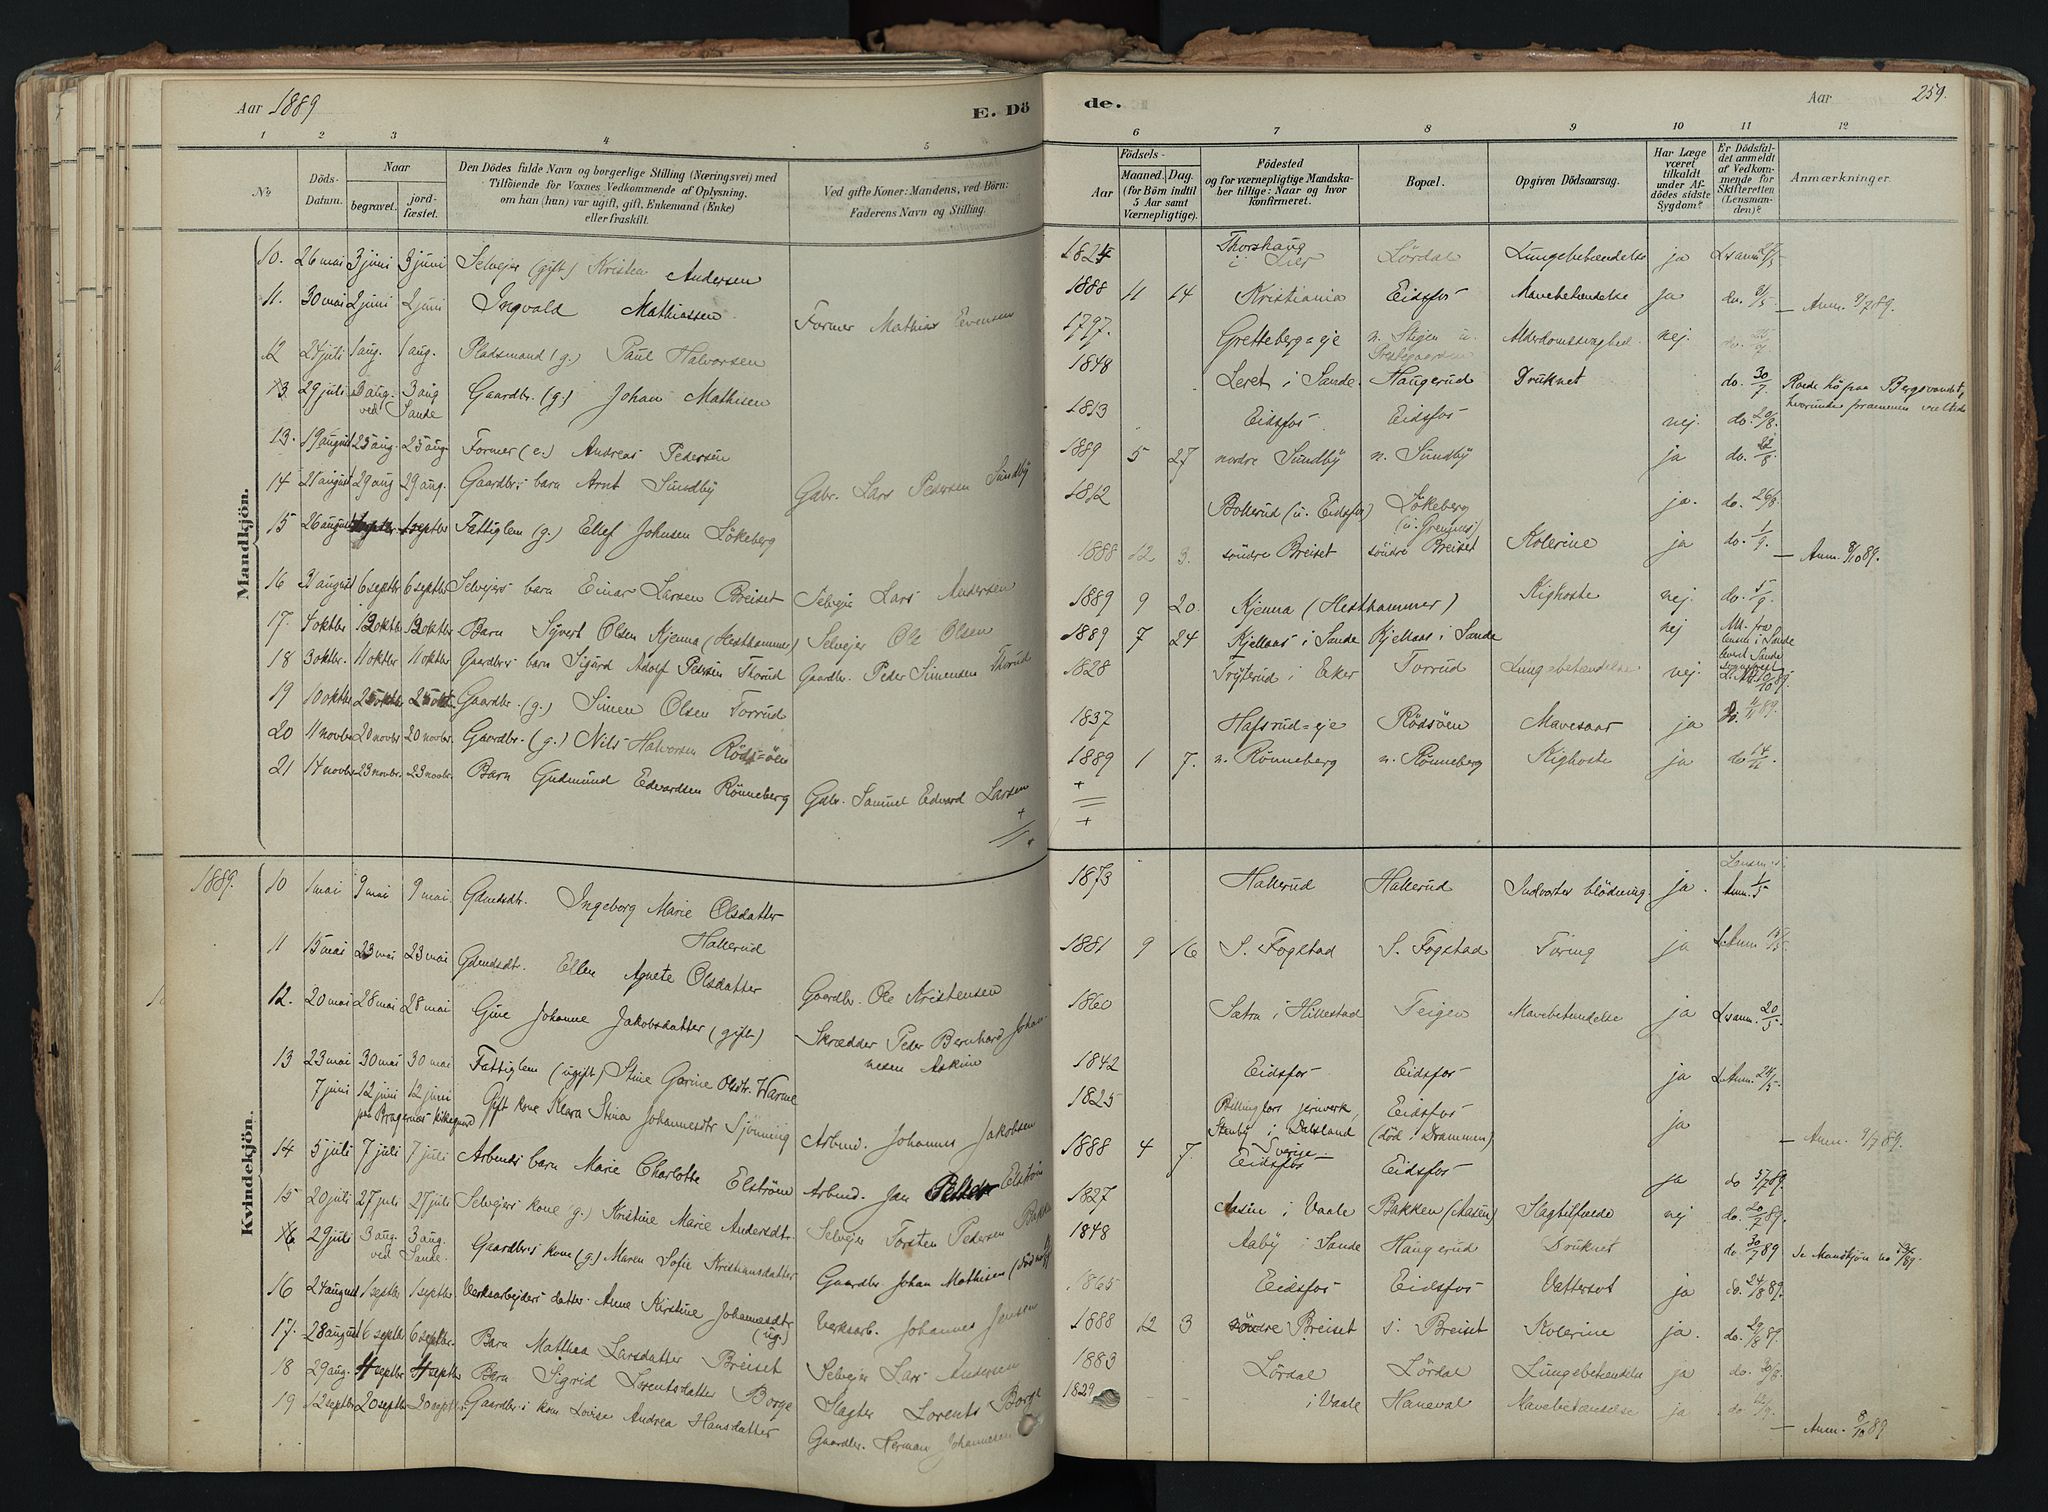 Aar 1889
E. Dö
de.
Aar
259.
1 2 3 4 5 6 7 8 9 10 11 12
No
Döds-Datum.
Naar
begravet.
jord-fæstet.
Den Dödes fulde Navn og borgerlige Stilling (Næringsvei) med
Tilföiende for Voxnes Vedkommende af Oplysning.
om han (hun) var ugift, gift, Enkemand (Enke)
eller fraskilt.
Ved gifte Koner: Mandens, ved Börn:
Faderens Navn og Stilling.
Födsels-
Aar
Maaned. Dag.
(for Börn indtil
5 Aar samt
Værnepligtige).
Födested
og for værnepligtige Mandska-
ber tillige: Naar og hvor
konfirmeret.
Bopæl.
Opgiven Dödsaarsag.
Har Læge
været
tilkaldt
under Af-
dödes sidste
Sygdom?
Er Dödsfal-
det anmeldt
af Vedkom-
mende for
Skifteretten
(Lensman-
den)?
Anmærkninger.
Mandkjön.
10. 26 mai 3 juni 3 juni Selveier (gift) Kristen Andersen 1824 Thorshaug i Lier Lördal Lungebetændelse ja
11. 30 mai 2 juni 2 juni Ingvald Mathiassen Former Mathias Evensen 1888 11 14 Kristiania Eidsfos Mavebetændelse ja do. 31/5 - Anm. 9/7 89.
12 24 juli 1 aug. 1 aug. Pladsmand (g.) Paul Halvorsen 1797. Gretteberg=eje n. Stigen u. Prestegaarden Alderdomssvaghed nej. do.
13. 29 juli 3 aug. ved 3 aug Sande Gaardbr. (g.) Johan Mathisen 1848 Leret i Sande Haugerud Druknet do. 30/7 Roede kö paa Bergsvandet,
13. 19 august 25 aug. 25 aug. Former (e.) Andreas Pedersen 1813 Eidsfos Eidsfos nej. do. 20/8.
14 21 august 29 aug 29 aug. Gaardbr.s barn Arnt Sundby Gdbr. Lars Pedersen Sundby 1889 5 27 nordre Sundby n. Sundby ja do. 22/8
15 26 august 1 septbr 1 septbr Fattiglem (g.) Ellef Johnsen Lökeberg 1812 Bollerud (u. Eidsfos) Lökeberg (u. Grennes) ja. do. 26/8
16 31 august 6 septbr 6 septbr Selvejers barn Einar Larsen Breiset Selvejer Lars Andersen 1888 12 3. söndre Breiset söndre Breiset Kolerine ja do. 1/9. - Anm. 8/10 89.
17. 4 oktbr 12 oktbr 12 oktbr Barn Syvert Olsen Kjenna (Hesthammer) Selvejer Ole Olsen 1889 9 20. Kjenna (Hesthammer) Kighoste nej. do. 5/9.
18 3 oktbr. 11 oktbr 11 oktbr Gaardbr.s barn Sigurd Adolf Pedersen Thorud Gaardbr. Peder Simensen Thorud 1889 7 24 Kjellaas i Sande Kjellaas i Sande nej
19 10 oktbr 25 oktbr 25 oktbr Gaardbr. (g.) Simen Olsen Torrud 1828 Tryterud i Eker Torrud Lungebetændelse nej.
20 11 novbr 20 novbr 20 novbr. Gaardbr. (g.) Nils Halvorsen Rödsöen 1837 Hafsrud=eje Rödsöen Mavesaar ja
21 14 novbr 23 novbr. 23 novbr. Barn Gudmund Edvardsen Rönneberg Gdbr. Samuel Edvard Larsen 1889 1 7. n. Rönneberg n. Rönneberg Kighoste ja do 14/11
1889.
Kvindekjön.
10 1 mai 9 mai 9 mai Gdmdsdtr. Ingeborg Marie Olsdatter Hallerud 1873 Hallerud Hallerud Indvortes blödning ja. Anm. 1/5
11 15 mai 23 mai 23 mai Gdmdsdtr. Ellen Agnete Olsdatter Gaardbr. Ole Kristensen 1881 9 16 S. Fogstad S. Fogstad Tæring ja
12. 20 mai 28 mai 28 mai Gine Johanne Jakobsdatter (gift) Skrædder Peder Bernhard Johannesen Askim 1860 Sætra i Hillestad Teigen Mavebetændelse ja Lsanm. 20/5
13 23 mai 30 mai 30 mai Fattiglem (ugift) Stine Gurine Olsdtr. Warme 1842 Eidsfos Eidsfos ja
7 juni 12 juni 12 juni paa Bragernes kirkegaard Gift kone Klara Stina Johannesdtr Sjönning Arbmd. Johannes Jakobsen 1825 Billingfors jernverk, Stenby i Dalsland Sverige. Eidsfos (död i Drammen) ja - Anm. 9/7 89.
14 5 juli 7 juli 7 juli Arbmds barn Marie Charlotte Elström Arbmd. Jan Petter Elström 1888 4 7. Eidsfos Eidsfos ja do 5/7 89.
15 20 juli 27 juli 27 juli Selvejers kone (g.) Kristine Marie Andersdtr. Selvejer Torsten Pedersen Bakken 1827 Aasen i Vaale Bakken (Aasen) Slagtilfælde nej do. 20/7 89.
16 29 juli 3 aug. ved 3 aug. Sande. Gaardbr.s kone (g.) Maren Sofie Kristiansdatter Gaardbr. Johan Mathisen 1848 Aaby i Sande Haugerud Druknet do. 30/7 89
16 24 august 1 septbr 1 septbr Verksarbejders datter Anne Kirstine Johannesdtr (ug.) Verksarb. Johannes Jensen 1865 Eidsfos Eidsfos Vattersot ja do. 24/8 89.
17. 28 august 6 septbr 6 septbr. Barn Mathea Larsdatter Breiset Selvejer Lars Andersen 1888 12 3 söndre Breiset s. Breiset Kolerine ja. do. 29/8 89.
18 29 aug. 4 septbr 4 septbr Barn Sigrid Lorentsdatter Borge Slagter Lorents Borge 1883 Lördal Lördal Lungebetændelse ja do. 30/8.
19 12 septbr 20 septbr 20 septbr. Gaardbr.s kone Lovise Andrea Hansdatter Gaardbr. Herman Johannesen 1829 - - i Vaale Haneval Mavebetændelse ja do. 12/9. - Anm. 8/10 89.